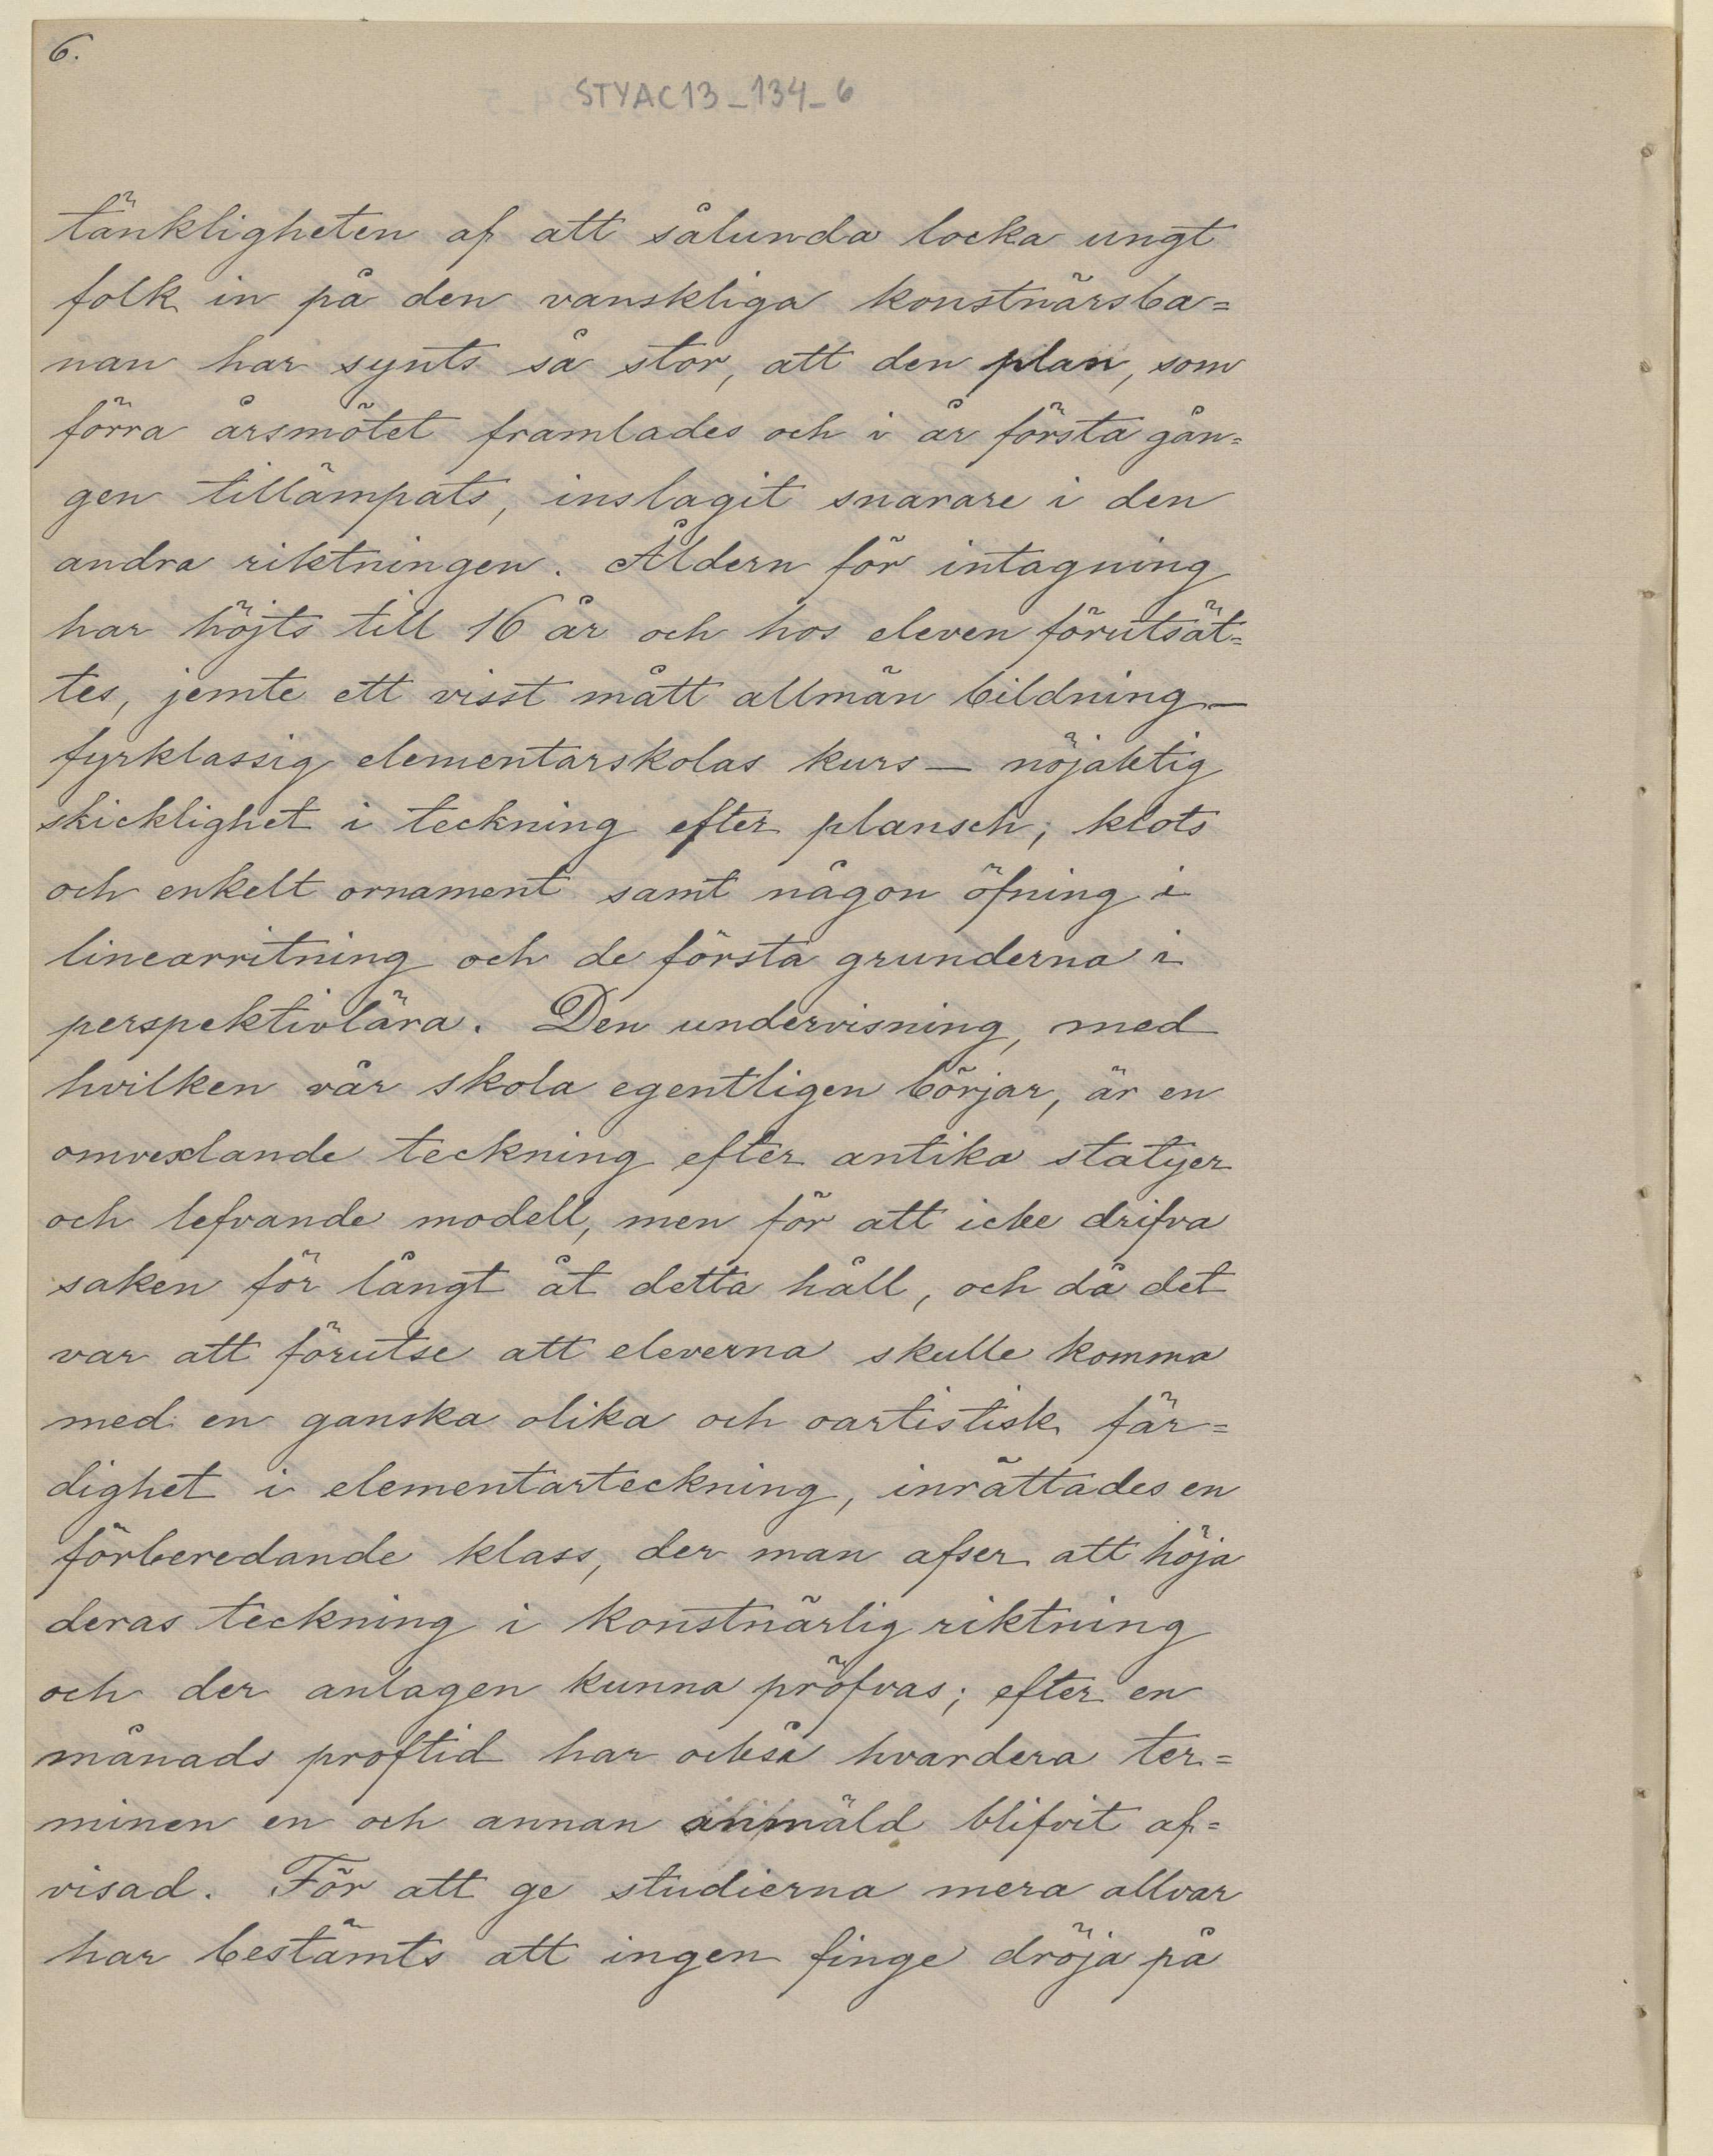 6.
STYAC13_134_6
tänkligheten af att sålunda locka ungt
folk in på den vanskliga konstnärsba=
nan har synts så stor, att den plan, som
förra årsmötet framlades och i år första gån=
gen tillämpats, inslagit snarare i den
andra riktningen. Åldern för intagning
har höjts till 16 år och hos eleven förutsät=
tes, jemte ett visst mått allmän bildning —
fyrklassig elementarskolas kurs — nöjaktig
skicklighet i teckning efter plansch, klots
och enkelt ornament samt någon öfning i
linearritning och de första grunderna i
perspektivlära. Den undervisning, med
hvilken vår skola egentligen börjar, är en
omvexlande teckning efter antika statyer
och lefvande modell, men för att icke drifva
saken för långt åt detta håll, och då det
var att förutse att eleverna skulle komma
med en ganska olika och oartistisk fär=
dighet i elementarteckning, inrättades en
förberedande klass, der man afser att höja
deras teckning i konstnärlig riktning
och der anlagen kunna pröfvas; efter en
månads proftid har också hvardera ter=
minen en och annan anmäld blifvit af=
visad. För att ge studierna mera allvar
har bestämts att ingen finge dröja på